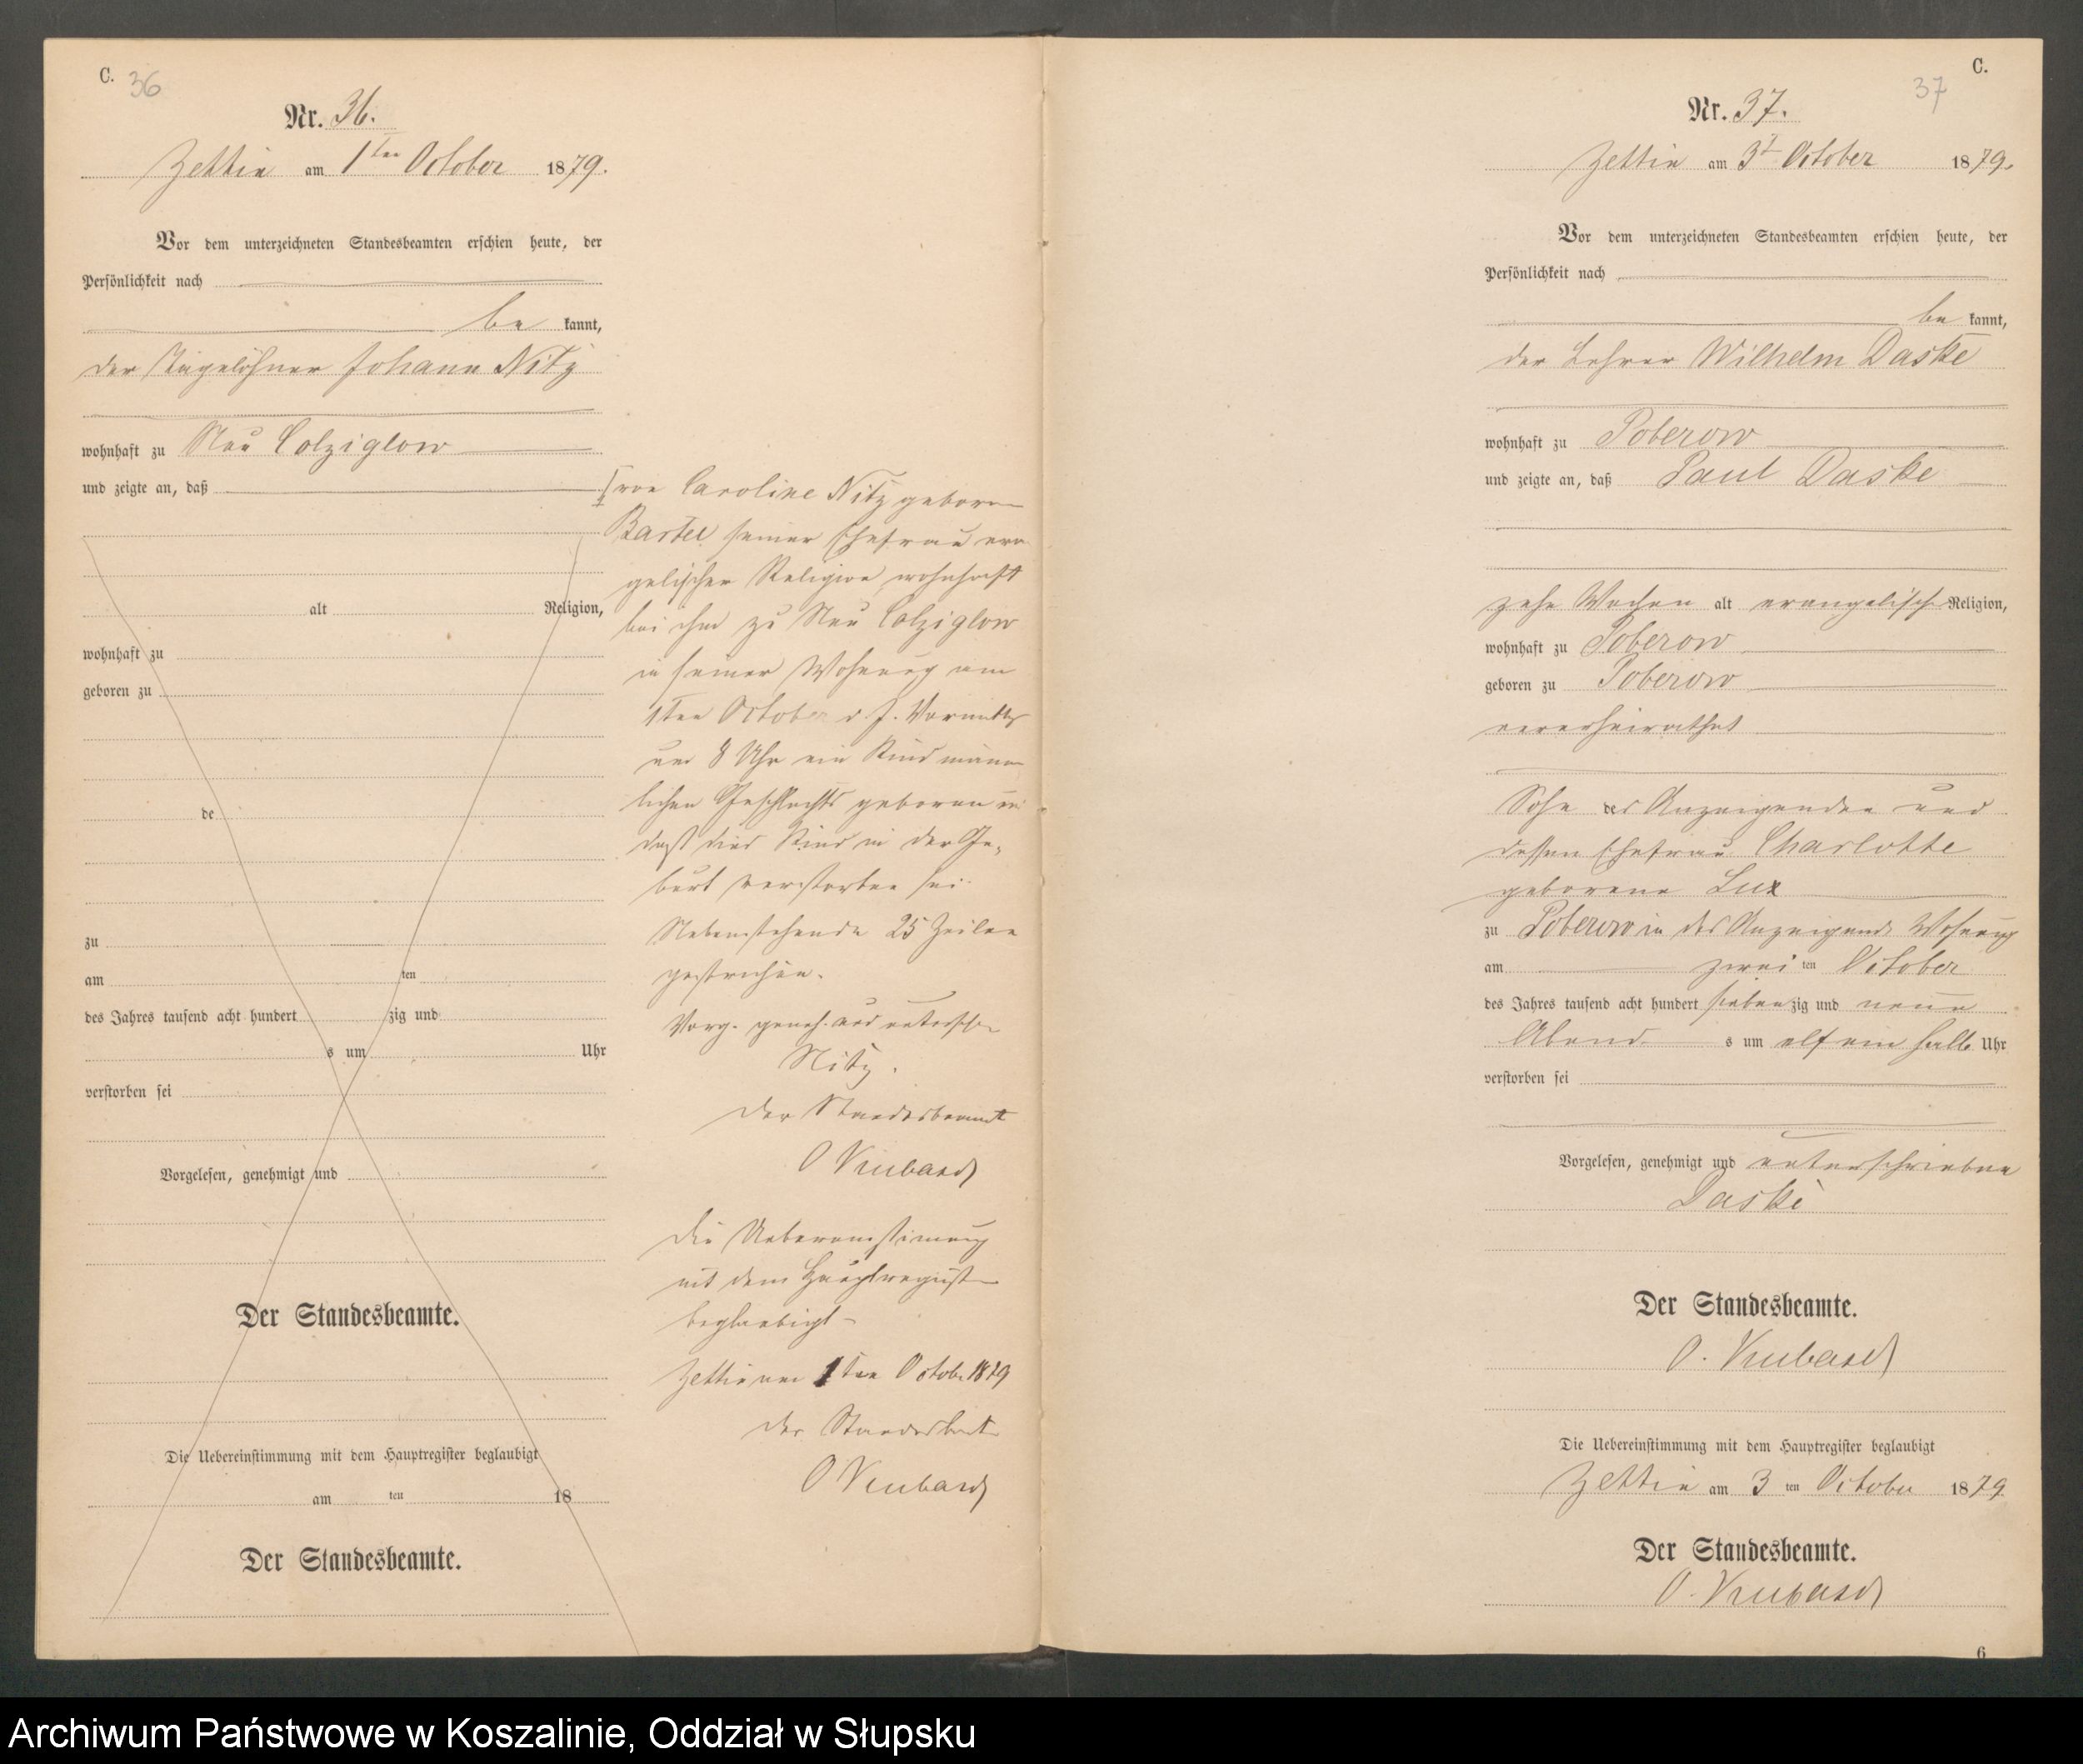 C. 36
Nr. 36.
Zettin am 1ten October 1879.
Vor dem unterzeichneten Standesbeamten erschien heute, der
Persönlichkeit nach
be kannt,
der Tagelöhner Johann Nitz
wohnhaft zu Neu Colziglow
und zeigte an, daß
alt Religion,
wohnhaft zu
geboren zu
de
zu
am ten
des Jahres tausend acht hundert zig und
s um Uhr
verstorben sei
Vorgelesen, genehmigt und
Der Standesbeamte.
Die Uebereinstimmung mit dem Hauptregister beglaubigt
am ten 18
Der Standesbeamte.
von Caroline Nitz geboren
Bartel seiner Ehefrau evan
gelischer Religion, wohnhaft
bei ihm zu Neu Colziglow
in seiner Wohnung am
1ten October d. J. Vormittgs
um 8 Uhr ein Kind männ
lichen Geschlechts geboren und
daß dies Kind in der Ge-
burt verstorben sei.
Nebenstehende 25 Zeilen
gestrichen.
Vorg. geneh. und unterschr
Nitz.
Der Standesbeamt
Die Uebereinstimung
mit dem Hauptregister
beglaubigt
Zettin am 1ten October 1879
Der Standesbeamte
C.
37
Nr. 37.
Zettin am 3t October 1879.
Vor dem unterzeichneten Standesbeamten erschien heute, der
Persönlichkeit nach
be kannt,
der Lehrer Wilhelm Daske
wohnhaft zu Poberow
und zeigte an, daß Paul Daske
zehn Wochen alt evangelisch Religion,
wohnhaft zu Poberow
geboren zu Poberow
unverheirathet
Sohn des Anzeigenden und
dessen Ehefrau Charlotte
geborene Lux
zu Poberow in des Anzeigende Wohnung
am zwei ten October
des Jahres tausend acht hundert sieben zig und neun
Abend s um elf ein halb Uhr
verstorben sei
Vorgelesen, genehmigt und unterschrieben
Daske
Der Standesbeamte.
Die Uebereinstimmung mit dem Hauptregister beglaubigt
Zettin am 3 ten October 1879
Der Standesbeamte.
6
Archiwum Państwowe w Koszalinie, Oddział w Słupsku